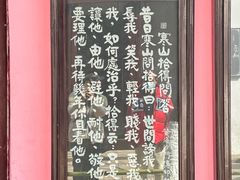 寒山拾得問答
昔日寒山問拾得曰：世間謗我、
辱我、笑我、輕我、賤我、惡我
我、如何處治乎？拾得云：只是
讓他、由他、避他、耐他、敬他
要理他、再待幾年你且看他。